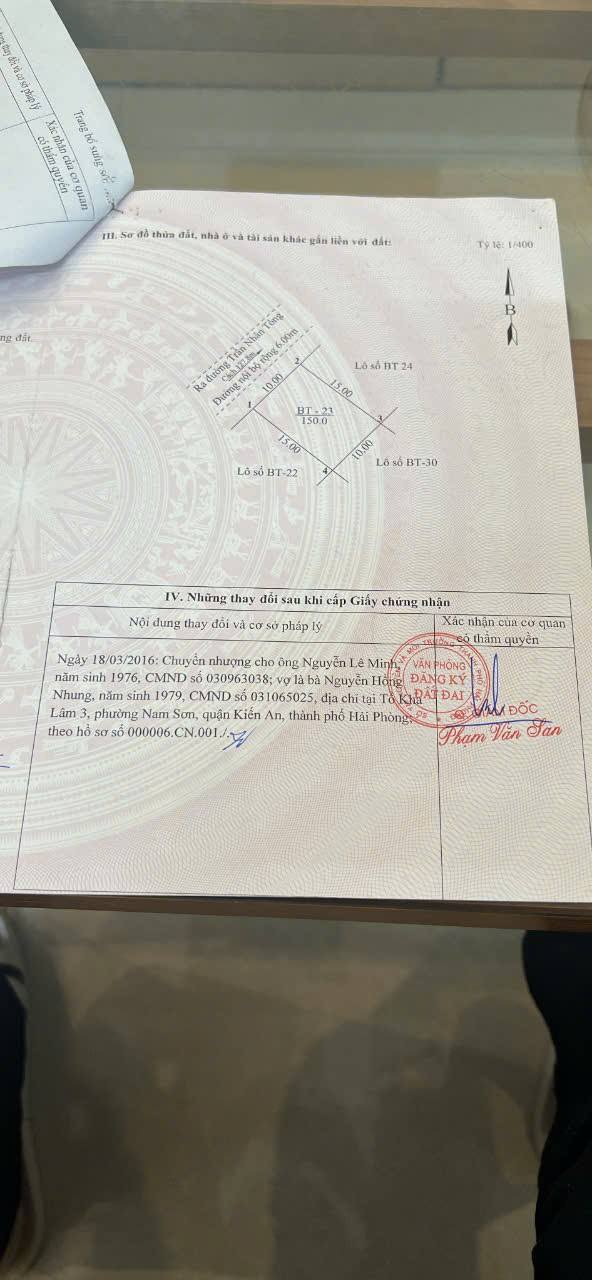 Trang bổ sung số:
Xác nhận của cơ quan
có thẩm quyền
ung thay đổi và cơ sở pháp lý
III. Sơ đồ thửa đất, nhà ở và tài sản khác gắn liền với đất:
Tỷ lệ: 1/400
B
ng đất.
Ra đường Trần Nhân Tông
Đường nội bộ rộng 6.00m
Lô số BT 24
2
10.00
15.00
1
BT - 23
150.0
3
15.00
10.00
4
Lô số BT-22
Lô số BT-30
IV. Những thay đổi sau khi cấp Giấy chứng nhận
Nội dung thay đổi và cơ sở pháp lý
Xác nhận của cơ quan
có thẩm quyền
Ngày 18/03/2016: Chuyển nhượng cho ông Nguyễn Lê Minh,
năm sinh 1976, CMND số 030963038; vợ là bà Nguyễn Hồng
Nhung, năm sinh 1979, CMND số 031065025, địa chỉ tại Tổ Khả
Lâm 3, phường Nam Sơn, quận Kiến An, thành phố Hải Phòng,
theo hồ sơ số 000006.CN.001./.
VĂN PHÒNG
ĐĂNG KÝ
ĐẤT ĐAI
ĐỐC
Phạm Văn San